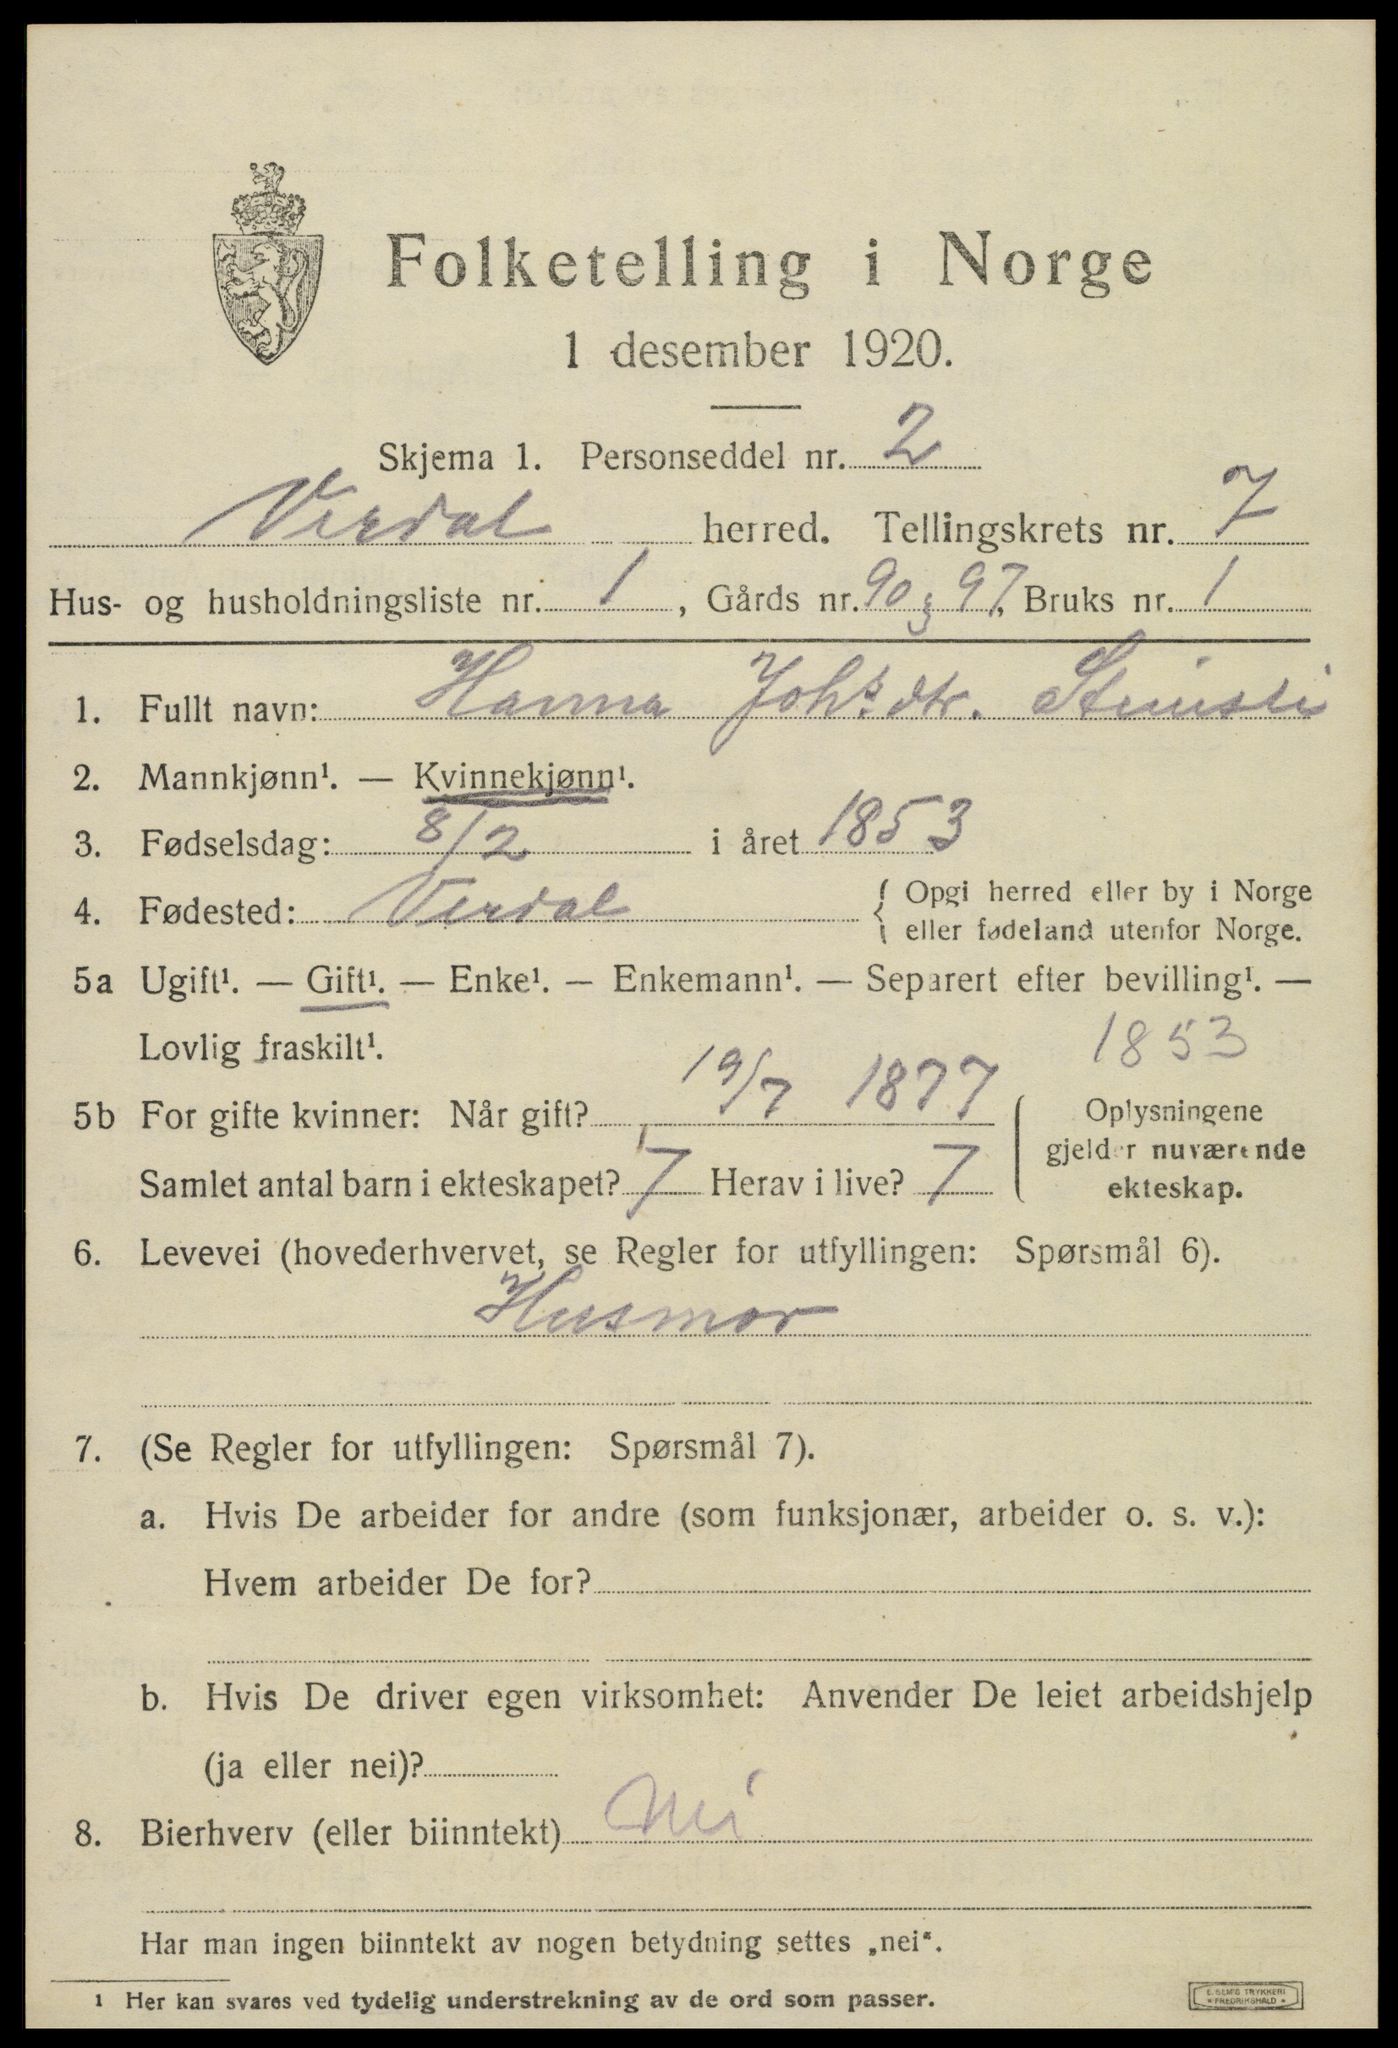 Folketelling i Norge
1 desember 1920.
Skjema 1. Personseddel nr. 2
Verdal herred. Tellingskrets nr. 7
Hus- og husholdningsliste nr. 1, Gårds nr. 90 & 97, Bruks nr. 1
1. Fullt navn: Hanna Johs.dtr. Steinsli
2. Mannkjønn¹. — Kvinnekjønn¹.
3. Fødselsdag: 8/2 i året 1853
4. Fødested: Verdal { Opgi herred eller by i Norge
eller fødeland utenfor Norge.
5a Ugift¹. — Gift¹. — Enke¹. — Enkemann¹. — Separert efter bevilling¹. —
Lovlig fraskilt¹. 1853
5b For gifte kvinner: Når gift? 19/7 1877
Samlet antal barn i ekteskapet? 7 Herav i live? 7
Oplysningene
gjelder nuværende
ekteskap.
6. Levevei (hovederhvervet, se Regler for utfyllingen: Spørsmål 6).
Husmor
7. (Se Regler for utfyllingen: Spørsmål 7).
a. Hvis De arbeider for andre (som funksjonær, arbeider o. s. v.):
Hvem arbeider De for?
b. Hvis De driver egen virksomhet: Anvender De leiet arbeidshjelp
(ja eller nei)?
8. Bierhverv (eller biinntekt) Nei
Har man ingen biinntekt av nogen betydning settes „nei“.
¹ Her kan svares ved tydelig understrekning av de ord som passer.
E. SEM'S TRYKKERI
FREDRIKSHALD